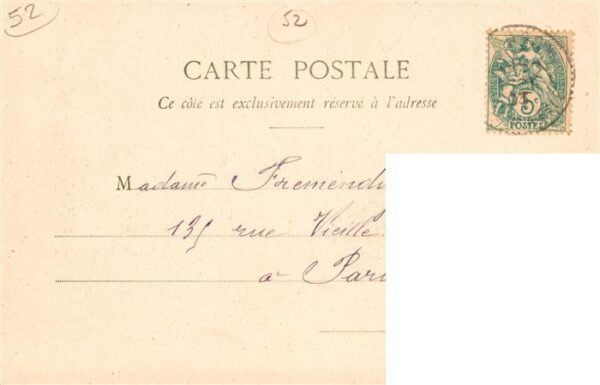 52
52
CARTE POSTALE
Ce côté est exclusivement réservé à l'adresse
5c
POSTES
Madame
rue Vieille
à